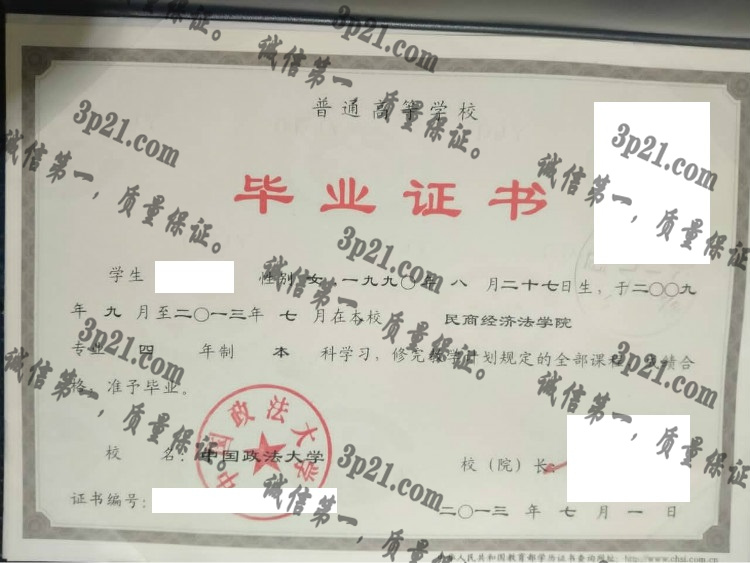 普通高等学校
毕业证书
学生 性别 女,一九九〇年 八 月二十七日生,于二〇〇九
年 九 月至二〇一三年 七 月在本校 民商经济法学院
专业 四 年制 本 科学习,修完教学计划规定的全部课程,成绩合
格,准予毕业。
校 名:中国政法大学 校(院)长:
证书编号:
二〇一三 年 七 月 一 日
中国政法大学
华人民共和国教育部学历证书查询网址:http://www.chsi.com.cn
3p21.com
诚信第一,质量保证。
3p21.com
诚信第一,质量保证。
3p21.com
诚信第一,质量保证。
3p21.com
诚信第一,质量保证。
3p21.com
诚信第一,质量保证。
3p21.com
诚信第一,质量保证。
3p21.com
诚信第一,质量保证。